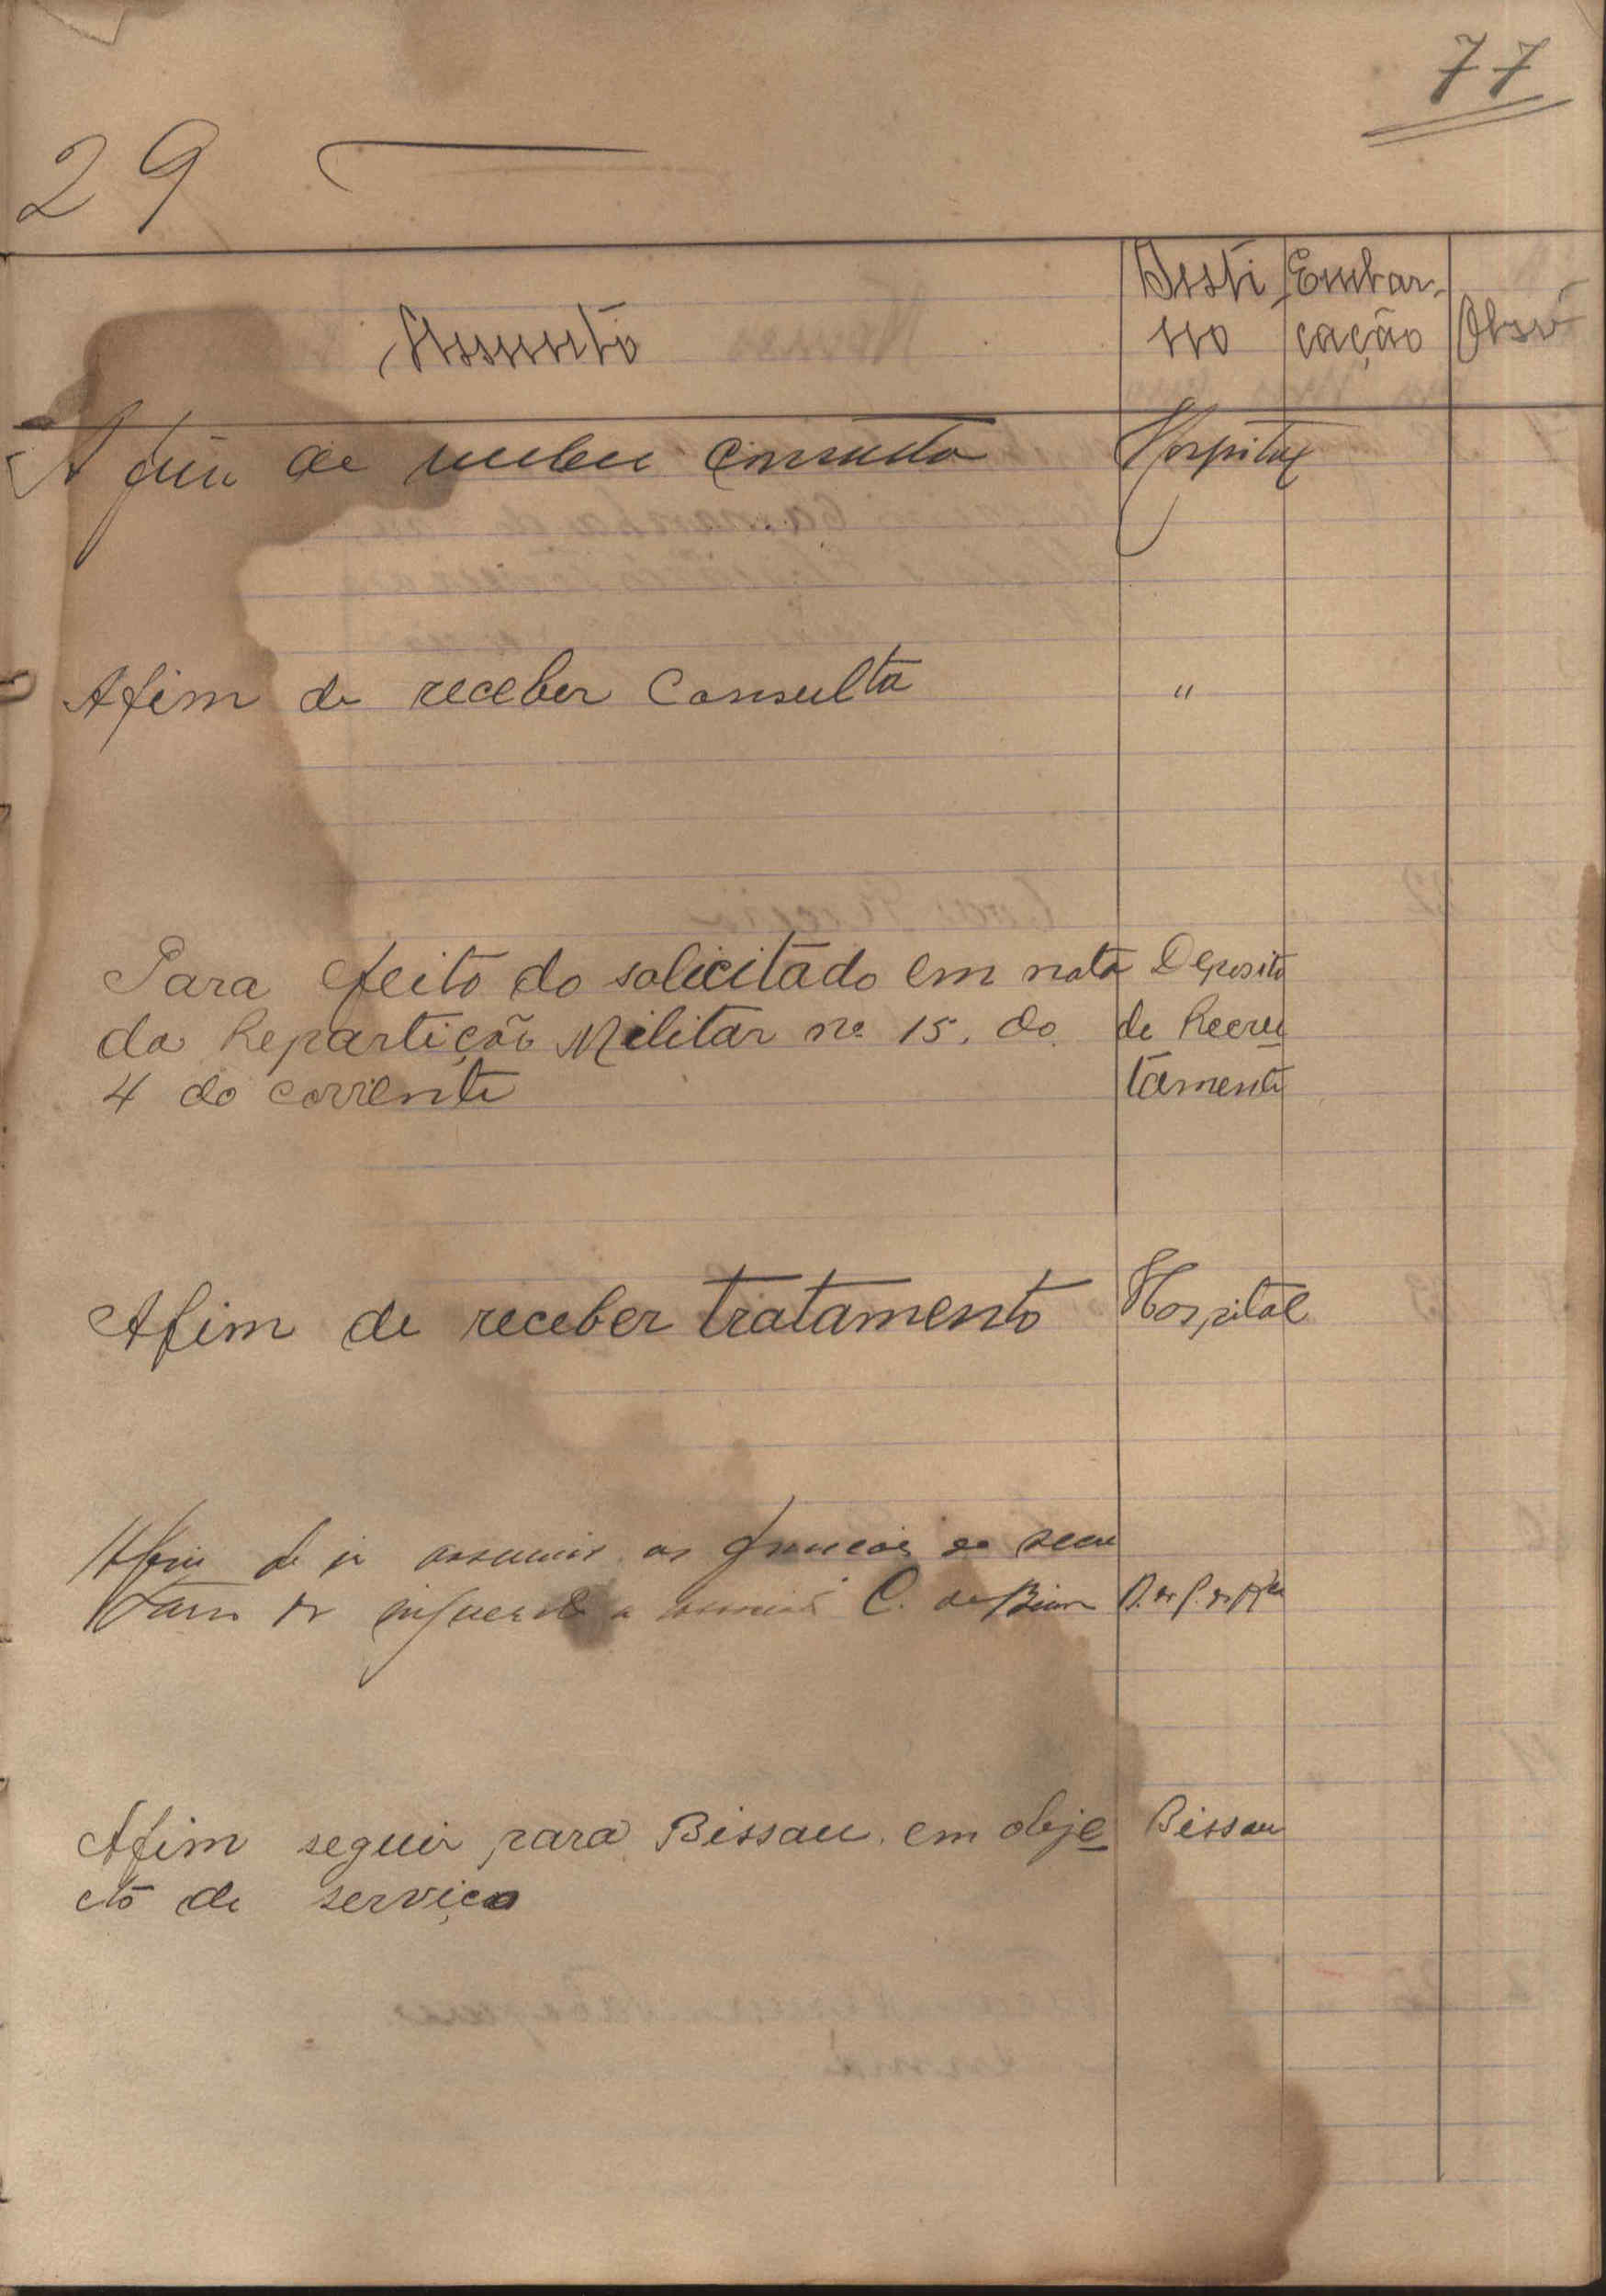 77
29
Assunto
Desti
no
Embar-
cação
Obsv
Afim de receber consulta Hospital
Afim de receber Consulta "
Para efeito do solicitado em nota Deposito
da Repartição Militar nº 15, do de Recru
4 do corrente tamento
Afim de receber tratamento Hospital
Afim de ir assumir as funcões de secre
C. de
Afim seguir para Bissau em obje Bissau
cto de serviço